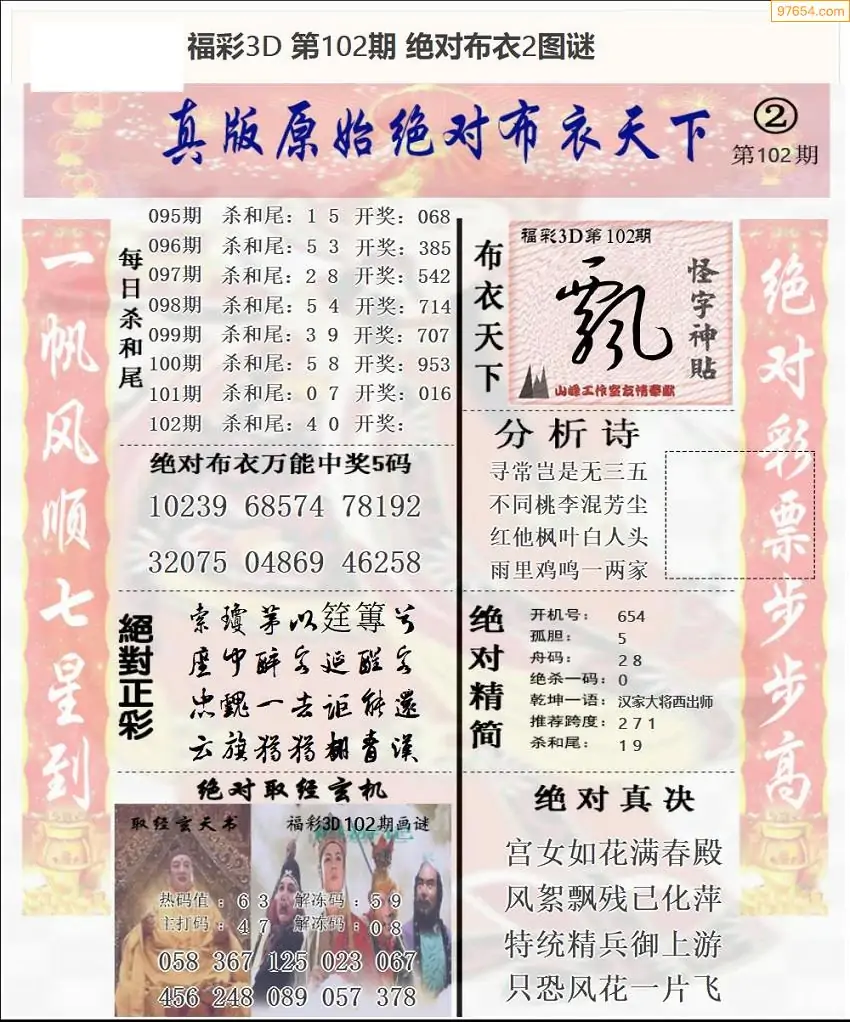 97654.com
福彩3D 第102期 绝对布衣2图谜
真版原始绝对布衣天下
②
第102期
一帆风顺七星到
每日杀和尾
095期 杀和尾：1 5 开奖：068
096期 杀和尾：5 3 开奖：385
097期 杀和尾：2 8 开奖：542
098期 杀和尾：5 4 开奖：714
099期 杀和尾：3 9 开奖：707
100期 杀和尾：5 8 开奖：953
101期 杀和尾：0 7 开奖：016
102期 杀和尾：4 0 开奖：
绝对布衣万能中奖5码
10239 68574 78192
32075 04869 46258
絕對正彩
云旗猗猗翻青汉
绝对取经玄机
取经玄天书
福彩3D102期画谜
热码值：6 3 解冻码：5 9
主打码：4 7 解冻码：0 8
058 367 125 023 067
456 248 089 057 378
布衣天下
福彩3D第102期
飘
怪字神贴
山峰工作室友情奉献
分析诗
寻常岂是无三五
不同桃李混芳尘
红他枫叶白人头
雨里鸡鸣一两家
绝对精简
开机号：654
孤胆：5
舟码：2 8
绝杀一码：0
乾坤一语：汉家大将西出师
推荐跨度：2 7 1
杀和尾：1 9
绝对真决
宫女如花满春殿
风絮飘残已化萍
特统精兵御上游
只恐风花一片飞
绝对彩票步步高